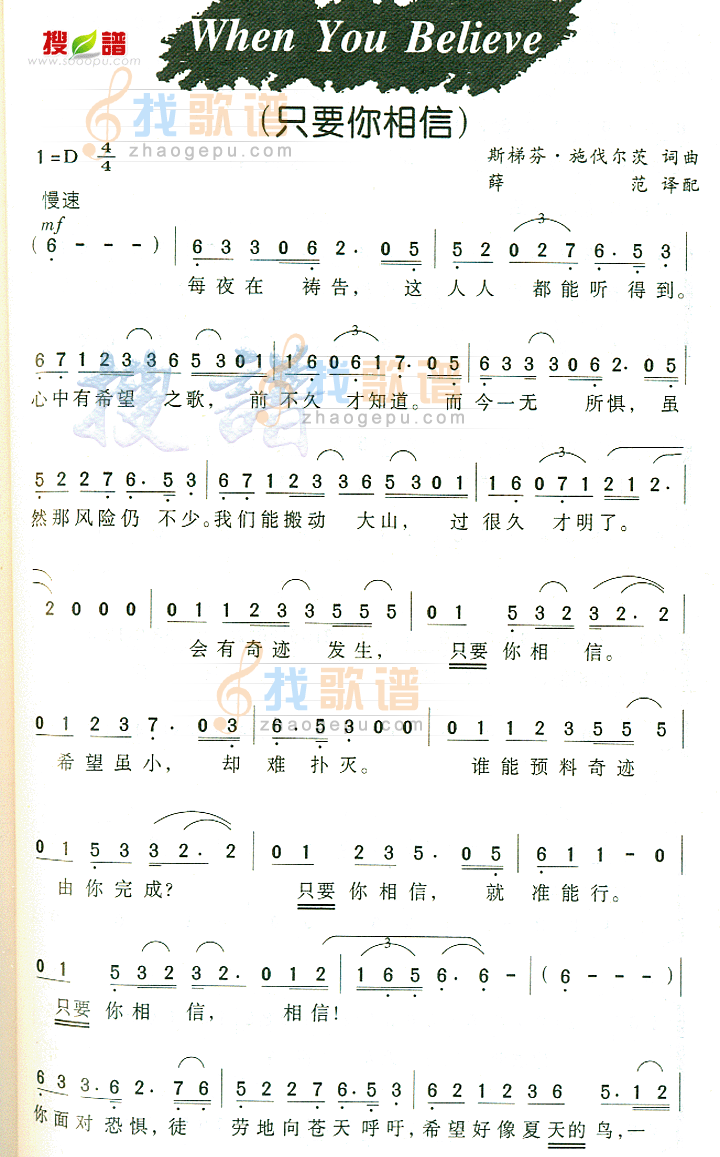 搜譜
www.sooopu.com
When You Believe
(只要你相信)
找歌谱
zhaogepu.com
1=D 4/4
斯梯芬·施伐尔茨 词曲
薛 范 译配
慢速
mf
(6 - - -) | 6 3 3 0 6 2. 0 5 | 5 2 0 2 7 6. 5 3 |
每夜在 祷告, 这 人人 都能听得到。
6 7 1 2 3 3 6 5 3 0 1 | 1 6 0 6 1 7. 0 5 | 6 3 3 3 0 6 2. 0 5
心中有希望 之歌, 前不久 才知道。而今一无 所惧, 虽
搜譜
找歌谱
zhaogepu.com
5 2 2 7 6. 5 3 | 6 7 1 2 3 3 6 5 3 0 1 | 1 6 0 7 1 2 1 2.
然那风险仍 不少。我们能搬动 大山, 过很久 才明了。
2 0 0 0 | 0 1 1 2 3 3 5 5 5 | 0 1 5 3 2 3 3 2. 2 |
会有奇迹 发生, 只要你相 信。
找歌谱
zhaogepu.com
0 1 2 3 7. 0 3 | 6. 5 3 0 0 | 0 1 1 2 3 5 5 5 |
希望虽小, 却难扑灭。 谁能预料奇迹
0 1 5 3 3 3 2. 2 | 0 1 2 3 5. 0 5 | 6 1 1 - 0
由你完成? 只要你相信, 就准能行。
0 1 5 3 2 3 2. 0 1 2 | 1 6 5 6. 6 - | (6 - - -) |
只要你相 信, 相信!
6 3 3. 6 2. 7 6 | 5 2 2 7 6. 5 3 | 6 2 1 2 3 6 5. 1 2 |
你面对恐惧,徒 劳地向苍天呼吁,希望好像夏天的鸟,一